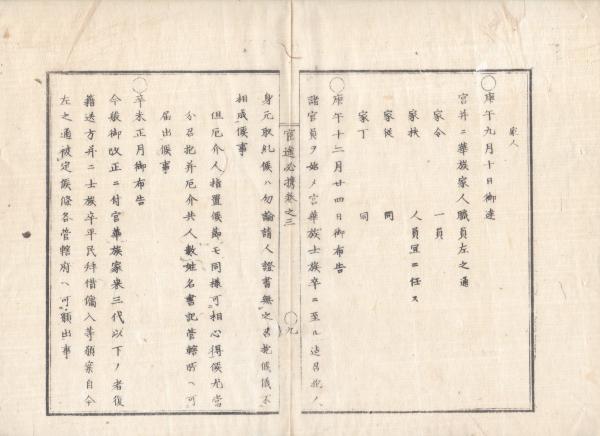 家人
○庚午九月十日御達
宮并ニ華族家人職員左之通
家令 一員
家扶 人員宜ニ任ス
家従 同
家丁 同
○庚午十二月廿四日御布告
諸官員ヲ始メ宮華族士族卒ニ至ル迄召抱ノ
官途必携巻之二
○九
身元取糺候ハ勿論請人證書無之召抱候儀不
相成候事
但厄介人指置候節モ同様可相心得候尤当
分召抱并厄介共人数姓名書記管轄所ヘ可
届出候事
○辛未正月御布告
今般御改正ニ付宮華族家来三代以下ノ者復
籍送方并ニ士族卒平民拝借傭入等願案自今
左之通被定候條各管轄府ヘ可願出事